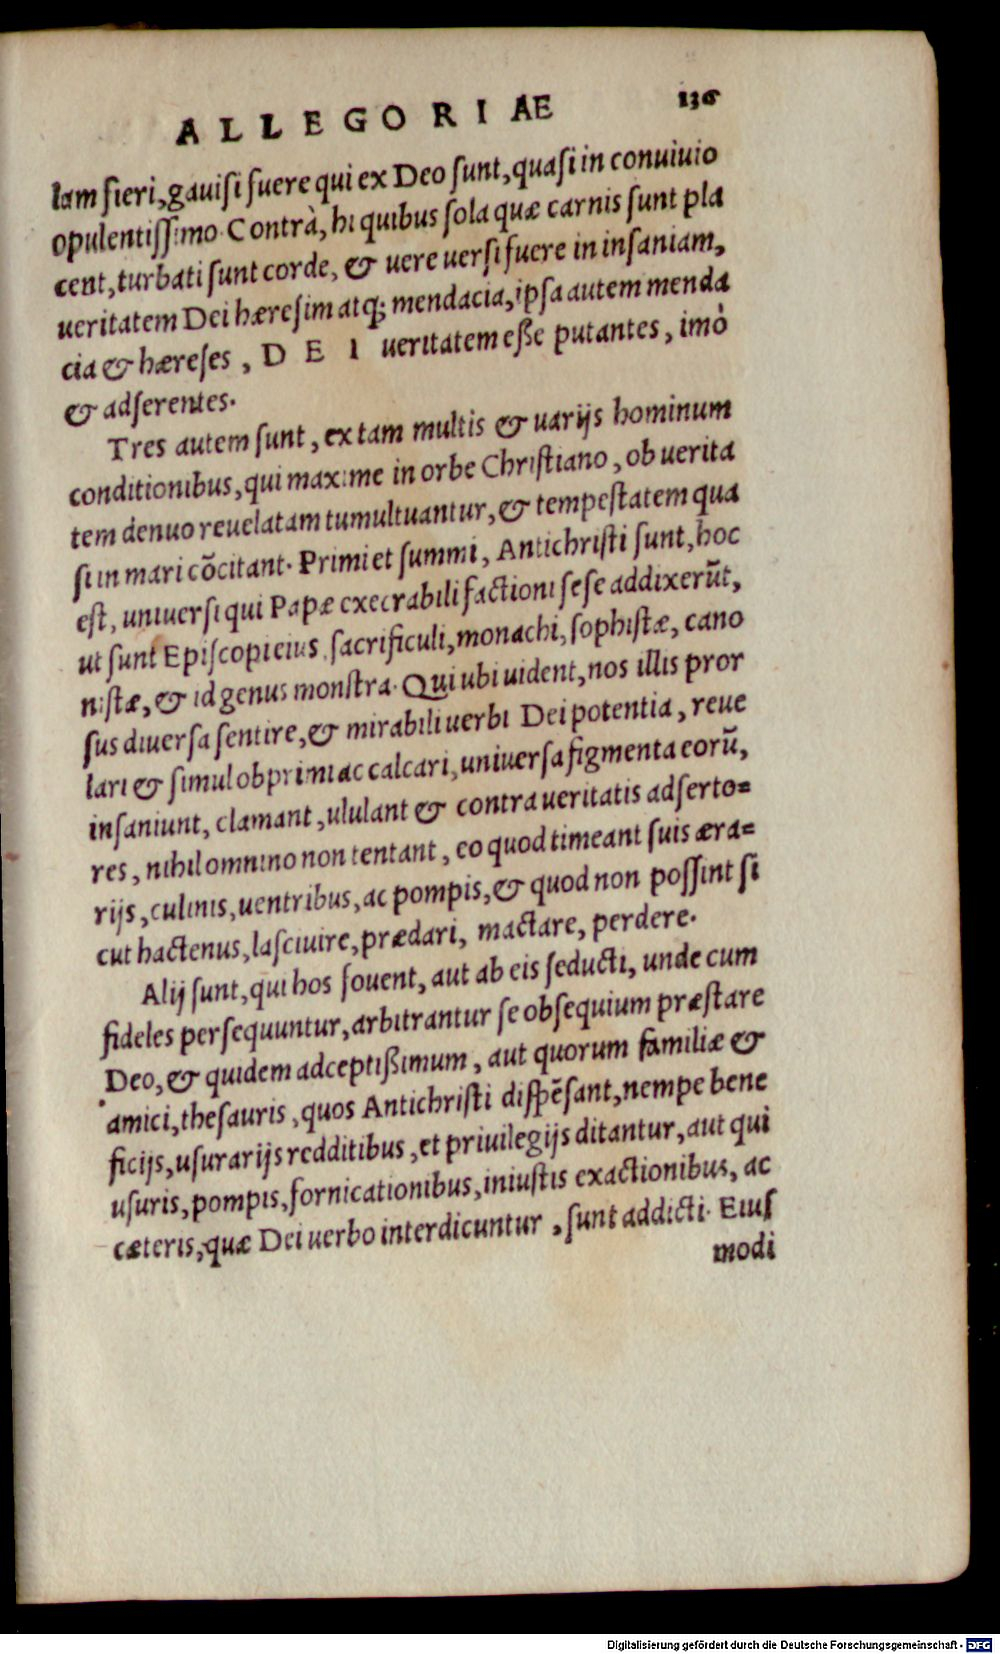 ALLEGORIAE 136
lam fieri, gauisi fuere qui ex Deo sunt, quasi in conuiuio
opulentissimo. Contrà, hi quibus sola quæ carnis sunt pla
cent, turbati sunt corde, & uere uersi fuere in insaniam,
ueritatem Dei hæresim atq; mendacia, ipsa autem menda
cia & hæreses, DEI ueritatem esse putantes, imò
& adserentes.
Tres autem sunt, ex tam multis & uarijs hominum
conditionibus, qui maxime in orbe Christiano, ob uerita
tem denuo reuelatam tumultuantur, & tempestatem qua
si in mari cõcitant. Primi et summi, Antichristi sunt, hoc
est, uniuersi qui Papæ execrabili factioni sese addixerũt,
ut sunt Episcopi eius, sacrificuli, monachi, sophistæ, cano
nistæ, & id genus monstra. Qui ubi uident, nos illis pror
sus diuersa sentire, & mirabili uerbi Dei potentia, reue
lari & simul obprimi ac calcari, uniuersa figmenta eorũ,
insaniunt, clamant, ululant & contra ueritatis adserto=
res, nihil omnino non tentant, eo quod timeant suis æra=
rijs, culinis, uentribus, ac pompis, & quod non possint si
cut hactenus, lasciuire, prædari, mactare, perdere.
Alij sunt, qui hos fouent, aut ab eis seducti, unde cum
fideles persequuntur, arbitrantur se obsequium præstare
Deo, & quidem adceptißimum, aut quorum familiæ &
amici, thesauris, quos Antichristi dispẽsant, nempe bene
ficijs, usurarijs redditibus, et priuilegijs ditantur, aut qui
usuris, pompis, fornicationibus, iniustis exactionibus, ac
cæteris, quæ Dei uerbo interdicuntur, sunt addicti. Eius
modi
Digitalisierung gefördert durch die Deutsche Forschungsgemeinschaft - DFG